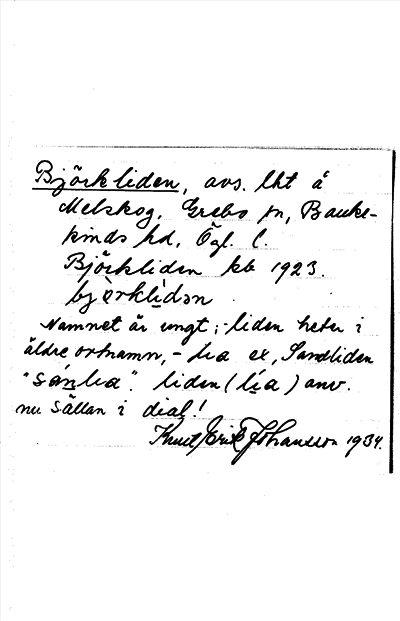 Björkliden, avs. lht å
Melskog, Grebo sn, Banke-
kinds hd, Ögl. l.
Björkliden kb 1923.
bjö̀rkli̇̀dən
Namnet är ungt; -liden heter i
äldre ortnamn, - lia ex, Sandliden
"sánlia". liden (lía) anv.
nu sällan i dial!
Knut Erik Johansson 1934.